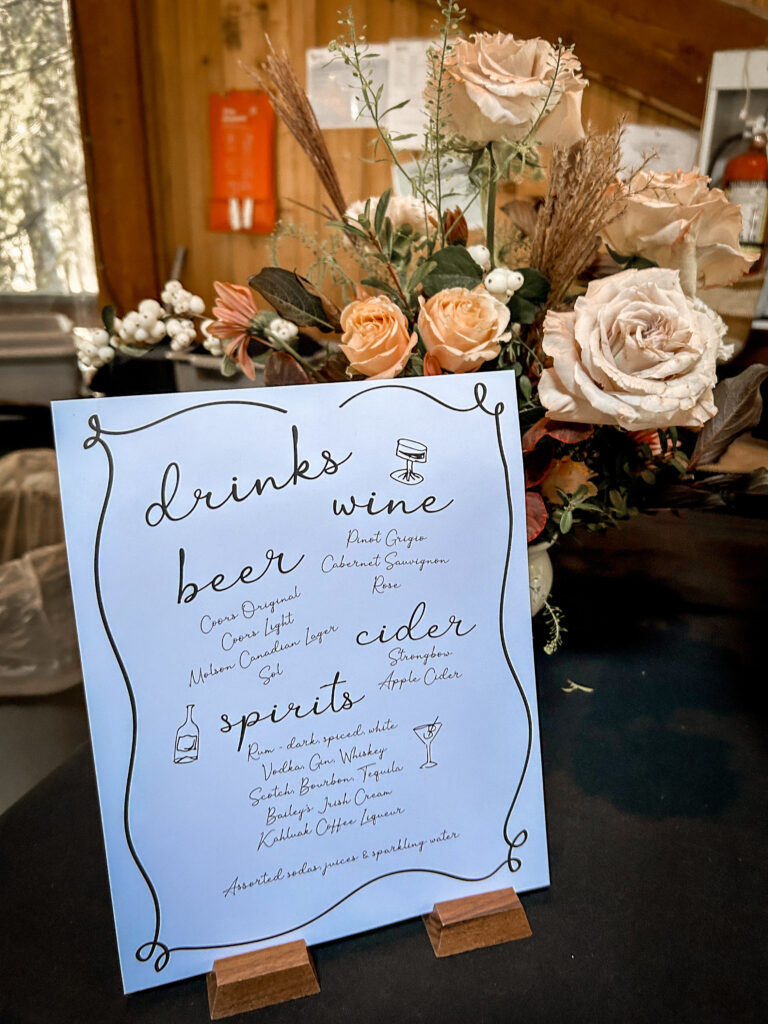 drinks
wine
Pinot Grigio
Cabernet Sauvignon
Rose
beer
Coors Original
Coors Light
Molson Canadian Lager
Sol
cider
Strongbow
Apple Cider
spirits
Rum - dark, spiced, white
Vodka, Gin, Whiskey
Scotch, Bourbon, Tequila
Bailey's Irish Cream
Kahluak Coffee Liqueur
Assorted sodas, juices & sparkling water